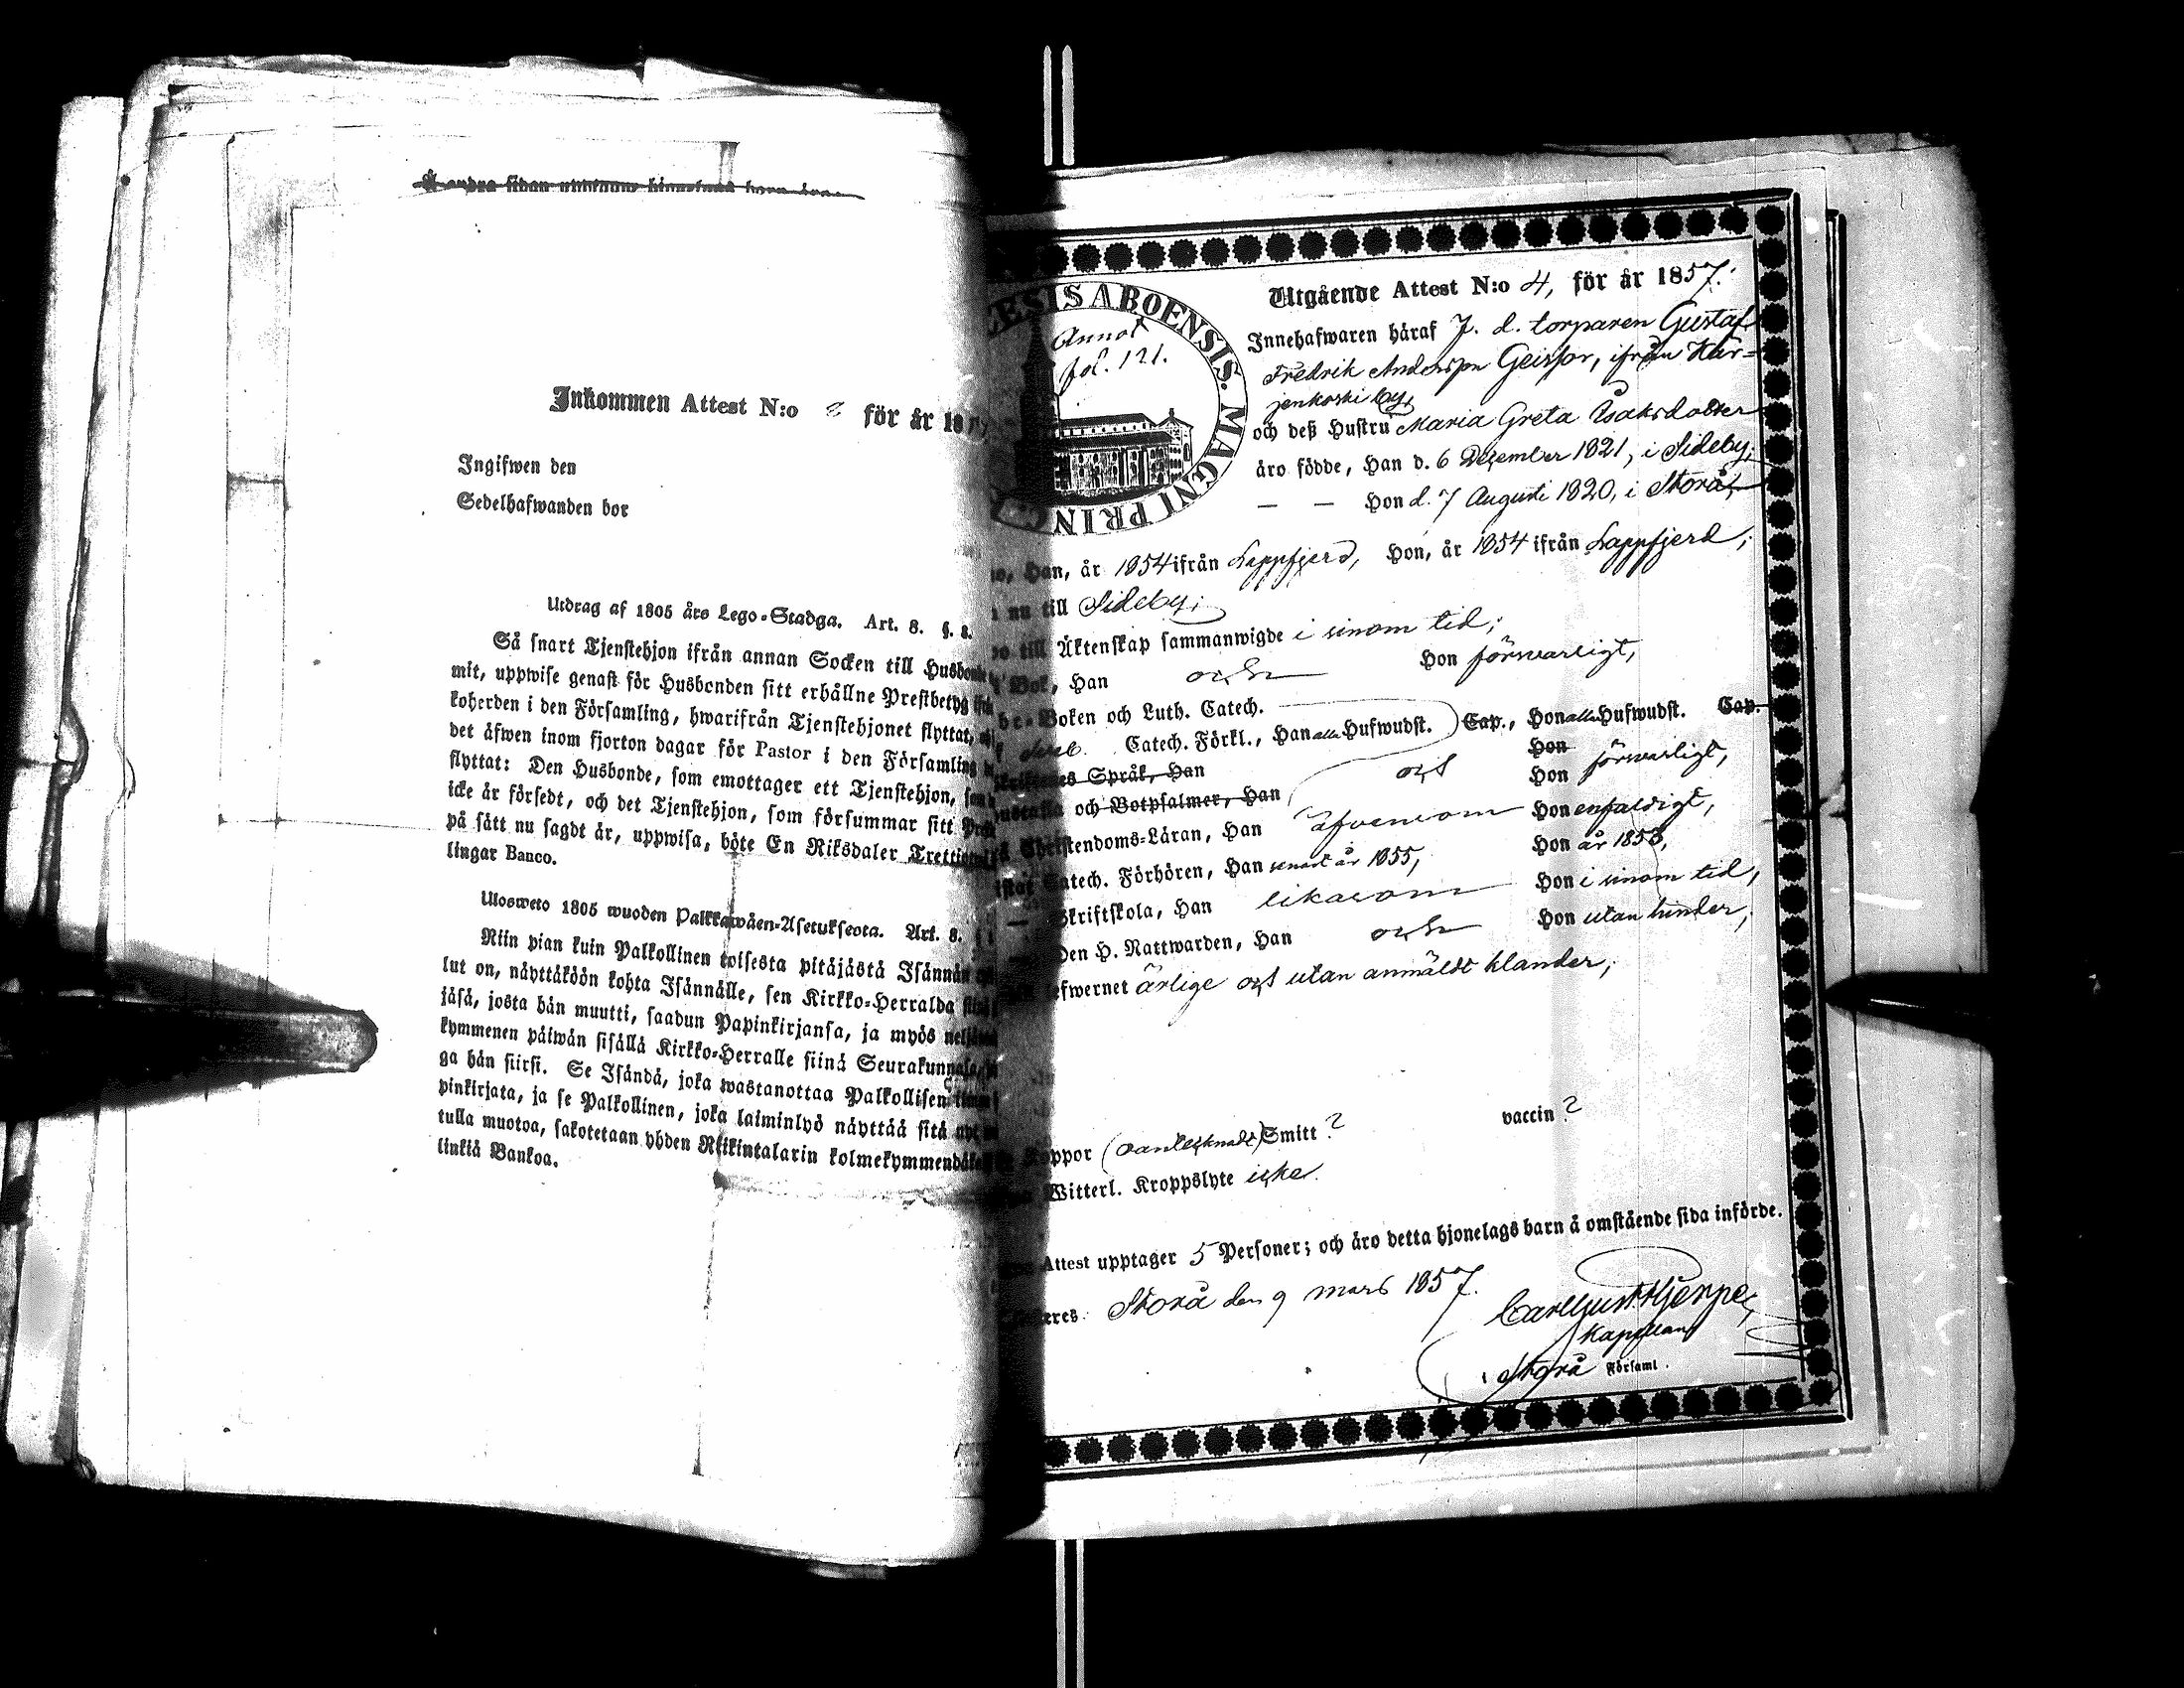 Å andra sidan
Inkommen Attest N:o för år 18
Ingifwen den
Sedelhafwanden bor
Utdrag af 1805 års Lego-Stadga. Art. 8. §. 8.
Så snart Tjenstehjon ifrån annan Socken till Husbonde
mit, uppwise genast för Husbonden sitt erhållne Prestbetyg
koherden i den Församling, hwarifrån Tjenstehjonet flyttat,
det äfwen inom fjorton dagar för Pastor i den Församling
flyttat: Den Husbonde, som emottager ett Tjenstehjon,
icke är försedt, och det Tjenstehjon, som försummar sitt
på sätt nu sagdt är, uppwisa, böte En Riksdaler
lingar Banco.
Ulosweto 1805 wuoden Palkkawäen-Asetuksesta. Art. 8.
Niin pian kuin Palkollinen toisesta pitäjästä Isännän
lut on, näyttäköön kohta Isännälle, sen Kirkko-Herralda
jäsä, josta hän muutti, saadun Papinkirjansa, ja myös
kymmenen päiwän sisällä Kirkko-Herralle siinä Seurakunnasa,
ga hän siirsi. Se Isändä, joka wastanottaa Palkollisen
pinkirjata, ja se Palkollinen, joka laiminlyö näyttää sitä
tulla muotoa, sakotetaan yhden Riikintalarin kolmekymmendä
linkiä Bankoa.
ESIS ABOENSIS. MAGNI PRINC
Annot
fol. 121.
Utgående Attest N:o 4, för år 1857.
Innehafwaren häraf f. d. torparen Gustaf
Fredrik Andersson Geisor, ifrån Kär-
jenkoski by,
och deß Hustru Maria Greta Isaksdotter
äro födde, Han d. 6 December 1821, i Sideby,
— — Hon d. 7 Augusti 1820, i Storå,
Han, år 1854 ifrån Lappfjerd, Hon, år 1854 ifrån Lappfjerd;
nu till Sideby;
till Äktenskap sammanwigde i sinom tid;
Bok, Han och Hon försvarligt,
Boken och Luth. Catech.
Catech. Förkl., Han alla Hufwudst. Cap., Hon alla Hufwudst. Cap.
Språk, Han och Hon
och Botpsalmer, Han Hon försvarligt,
Christendoms-Läran, Han äfvensom Hon enfaldigt,
Catech. Förhören, Han senast år 1855, Hon år 1853,
— Skriftskola, Han likasom Hon i sinom tid,
Den H. Nattwarden, Han och Hon utan hinder,
efwernet ärlige och utan anmäldt klander;
Koppor (oantecknadt) Smitt ? vaccin ?
Witterl. Kroppslyte icke.
Attest upptager 5 Personer; och äro detta hjonelags barn å omstående sida införde.
Storå den 9 mars 1857.
Carl Gust. Hjerpe,
Kapellan
i Storå Församl.